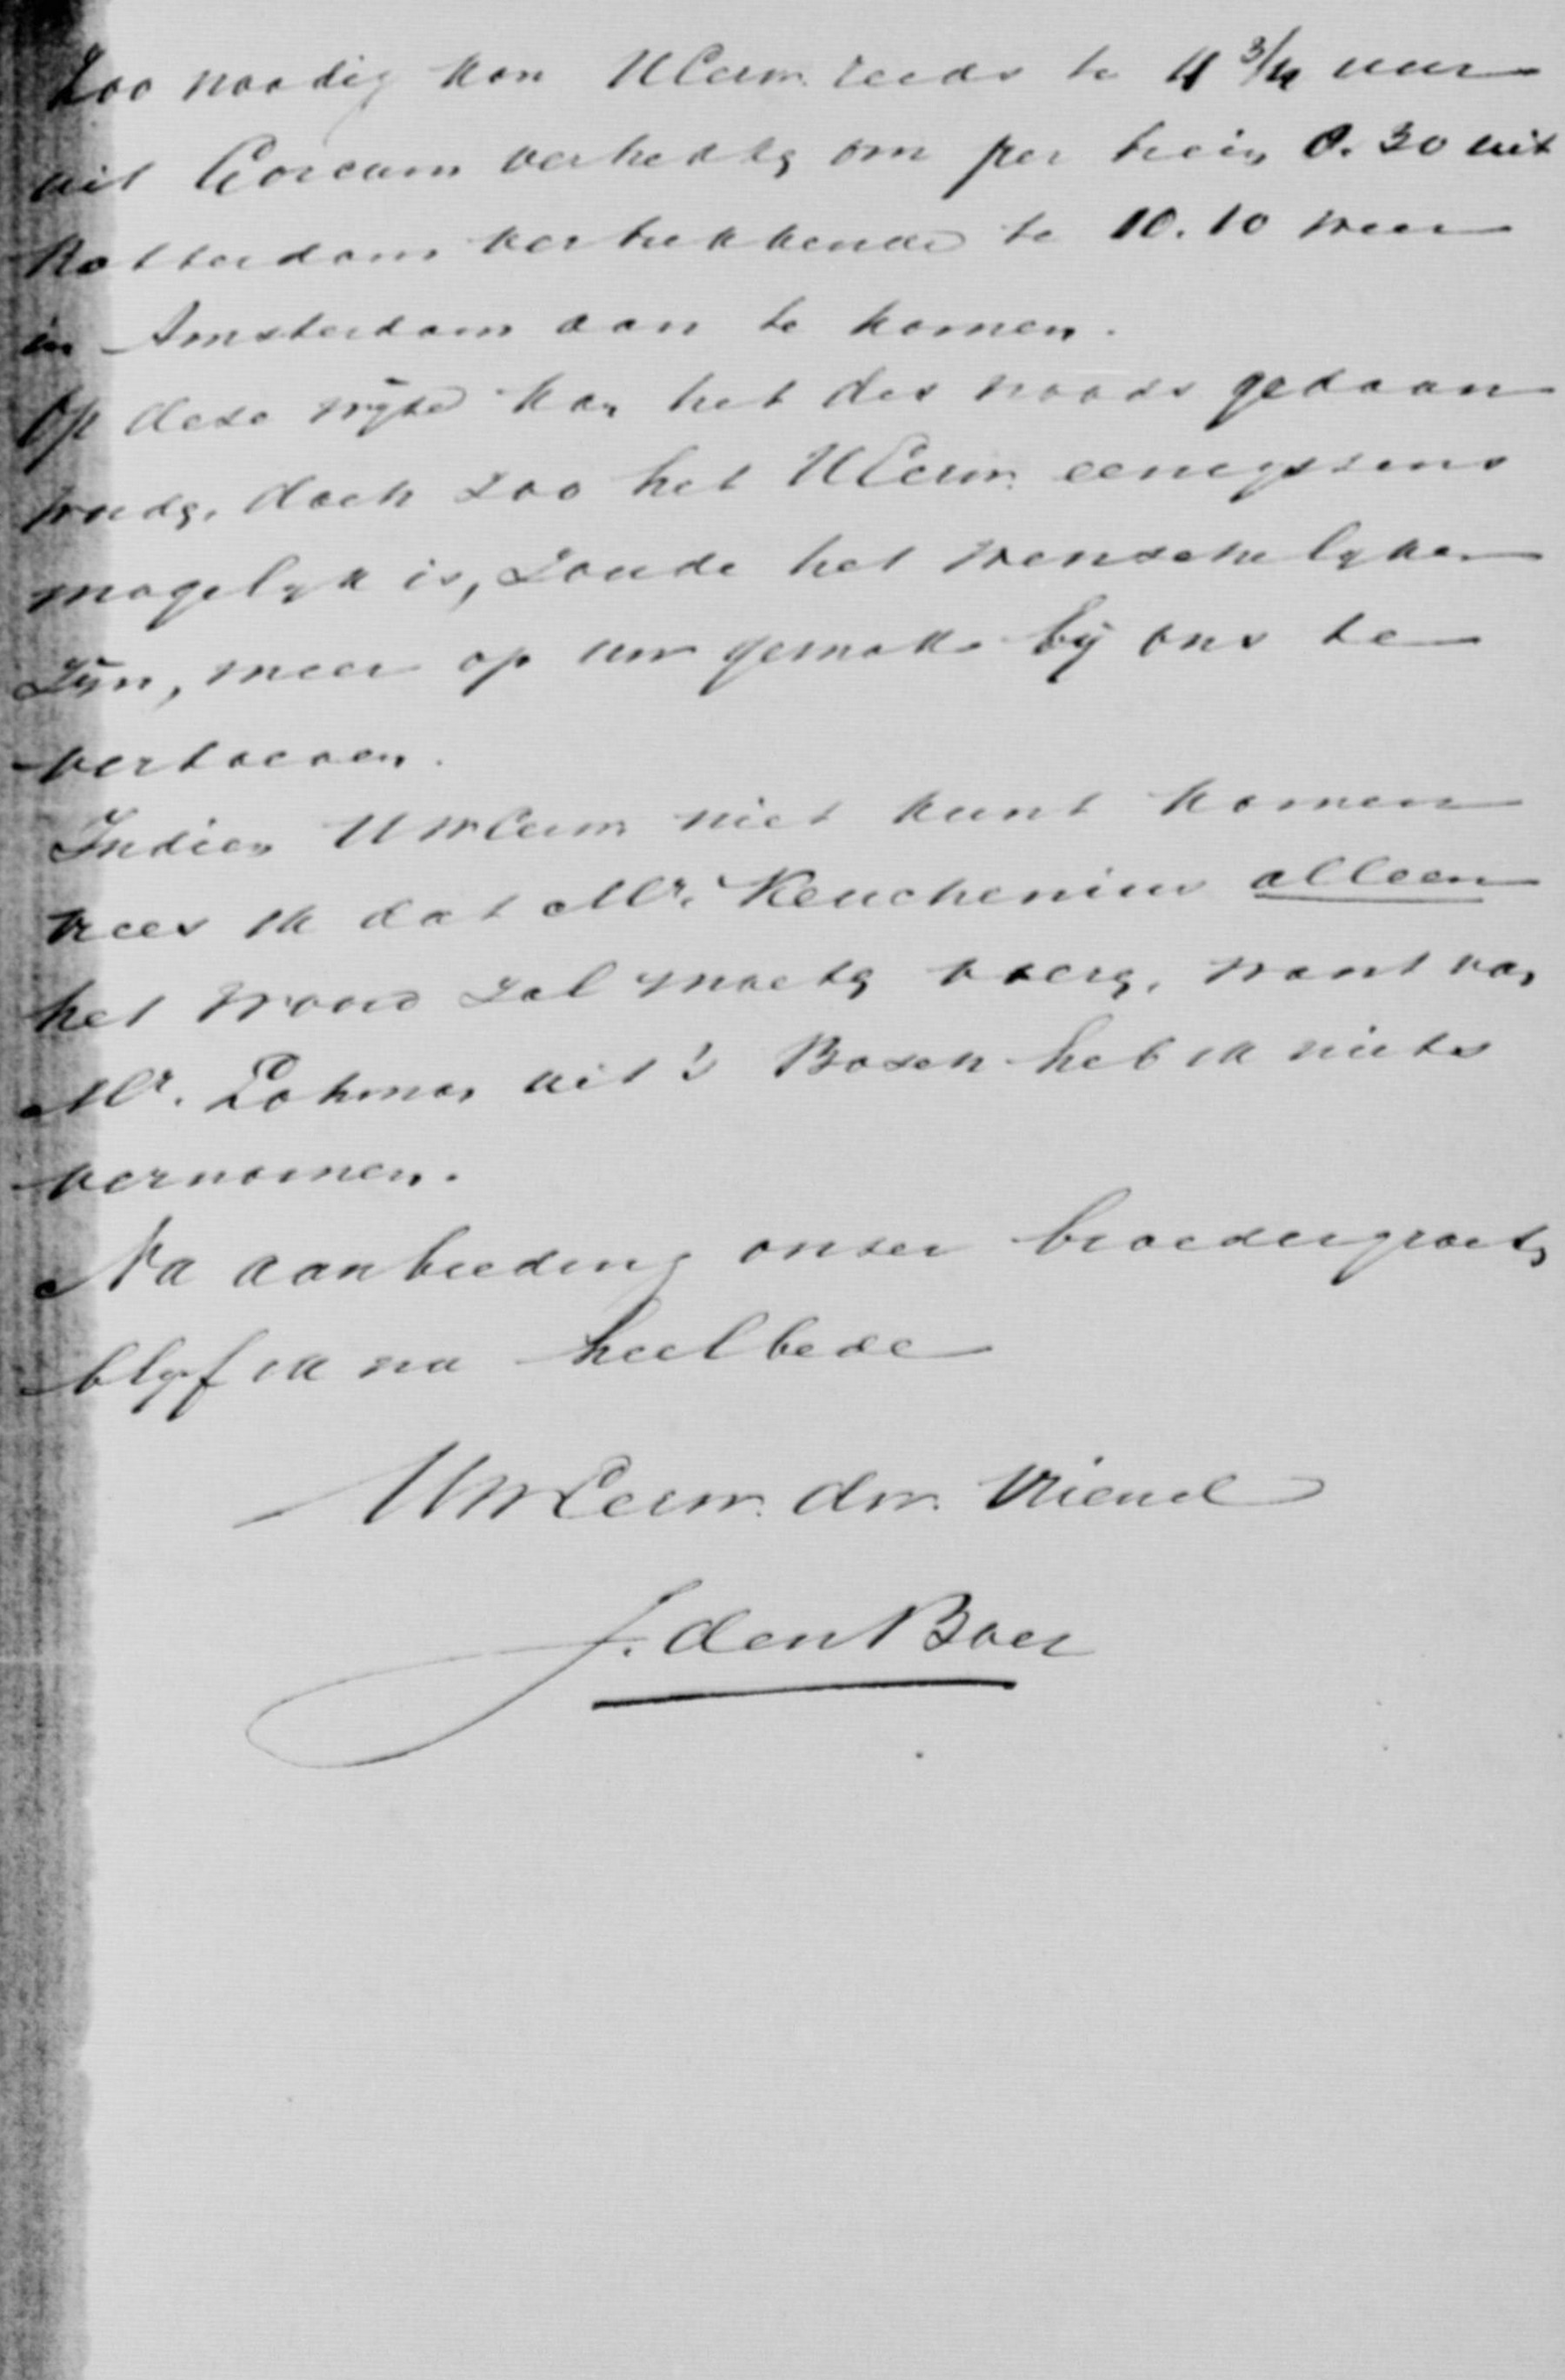 Zoo noodig kan UEerw. reeds te 4 3/4 uur
uit Gorcum vertrekken om per trein 8.30 uit
Rotterdam vertrekkende te 10.10 weer
in Amsterdam aan te komen.
Op deze wijze kan het des noods gedaan
worden, doch zoo het UEerw. eenigszins
mogelijk is, zoude het wenschelijker
zijn, meer op uw gemak bij ons te
vertoeven.
Indien UwEerw. niet kunt komen
vrees ik dat Mr. Keuchenius alleen
het woord zal moeten voeren, want van
Mr. Lohman uit 's Bosch heb ik niets
vernomen.
Na aanbieding onzer broedergroeten
blijf ik na heelbede
UwEerw. dw. Vriend
J. den Boer